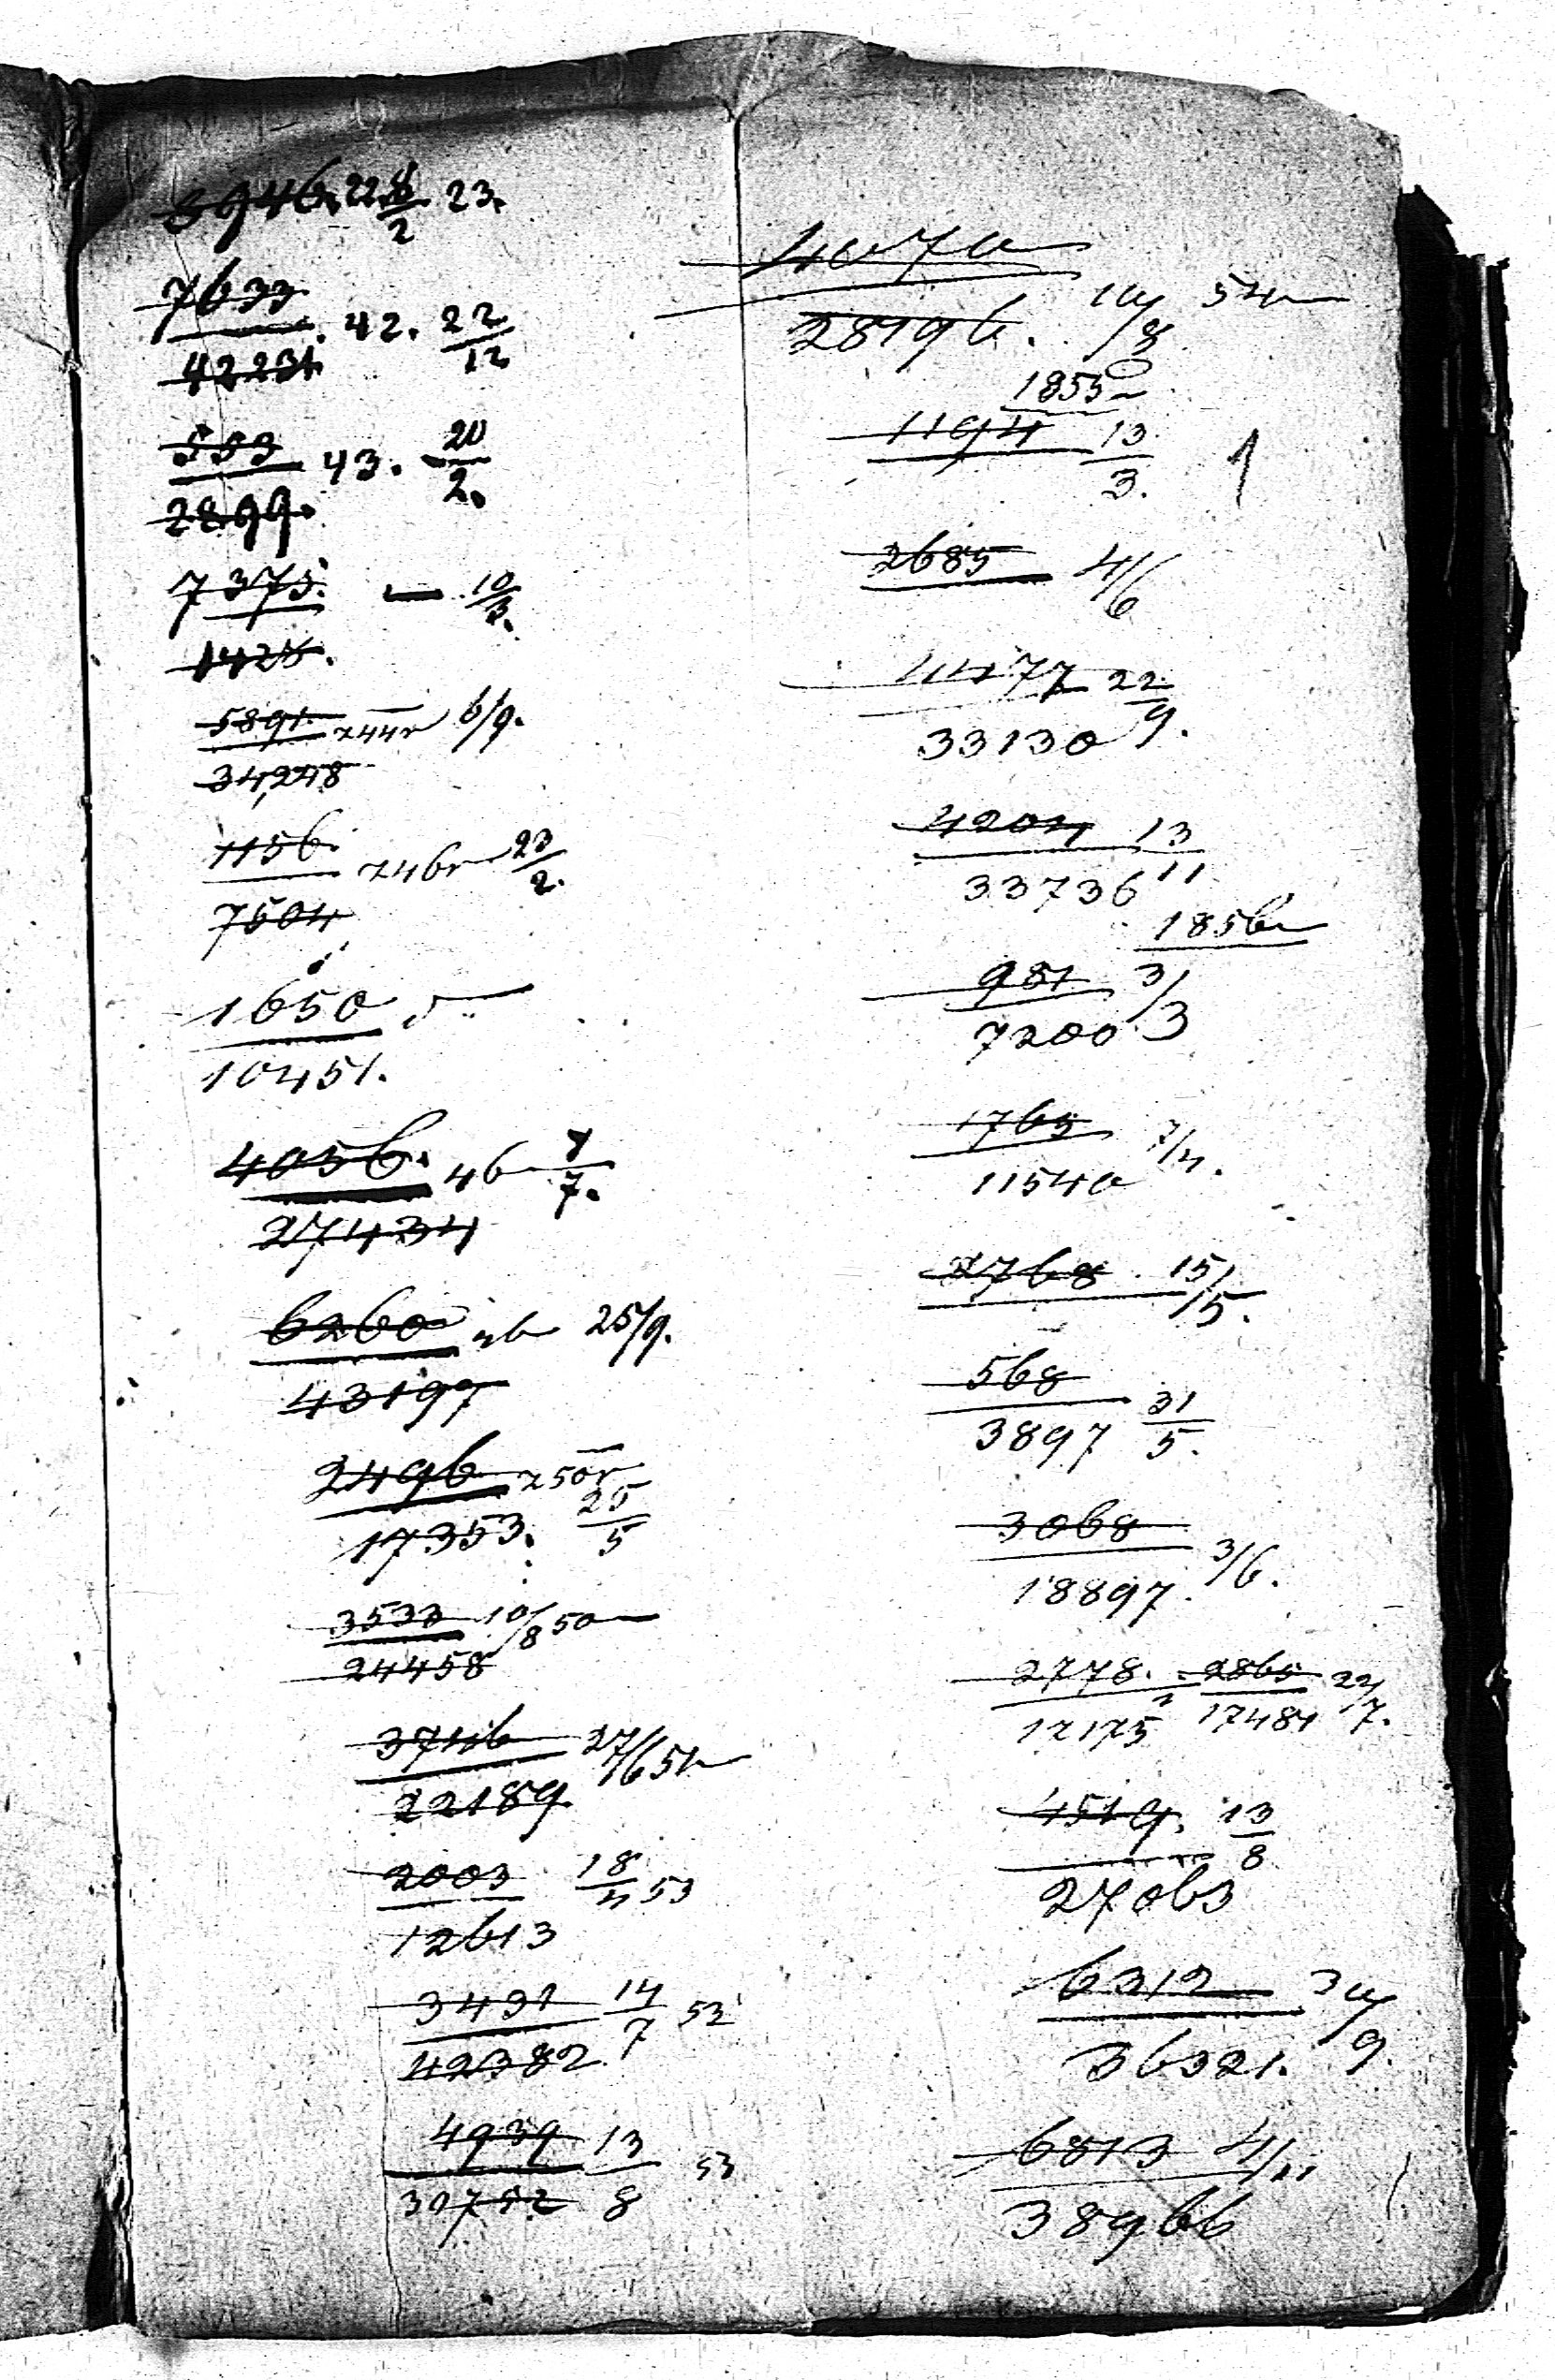 3946. 228/2 23.
7633
42231. 42. 22/12
553
2899. 43. 20/2.
7375. — 10/3.
1425.
5891. 244r 6/9.
34,248
1156. 246r 23/2.
7504
1650
10451.
4056. 46 7/7.
27434
6260 25/9.
43197
2496 250r
17353. 25/5
3533 10/8 50
24458
3746 27/6 51
22189
2003 18/4 53
12613
3431 14/7 53
42382.
4939 13/8 53
30752
4070
28196. 10/8 54
1855
1194 13/3.
2685 4/6
4477 22/9.
33130
4204 13/11
33736
1856
981 3/3
7200
1765 7/4.
11540
2768 15/5.
568
3897 31/5.
3068
18897. 3/6.
2778. 2865 22/7.
12175 17484
4519. 13/8
27063
6312 30/9.
36321.
6813 4/11
38966